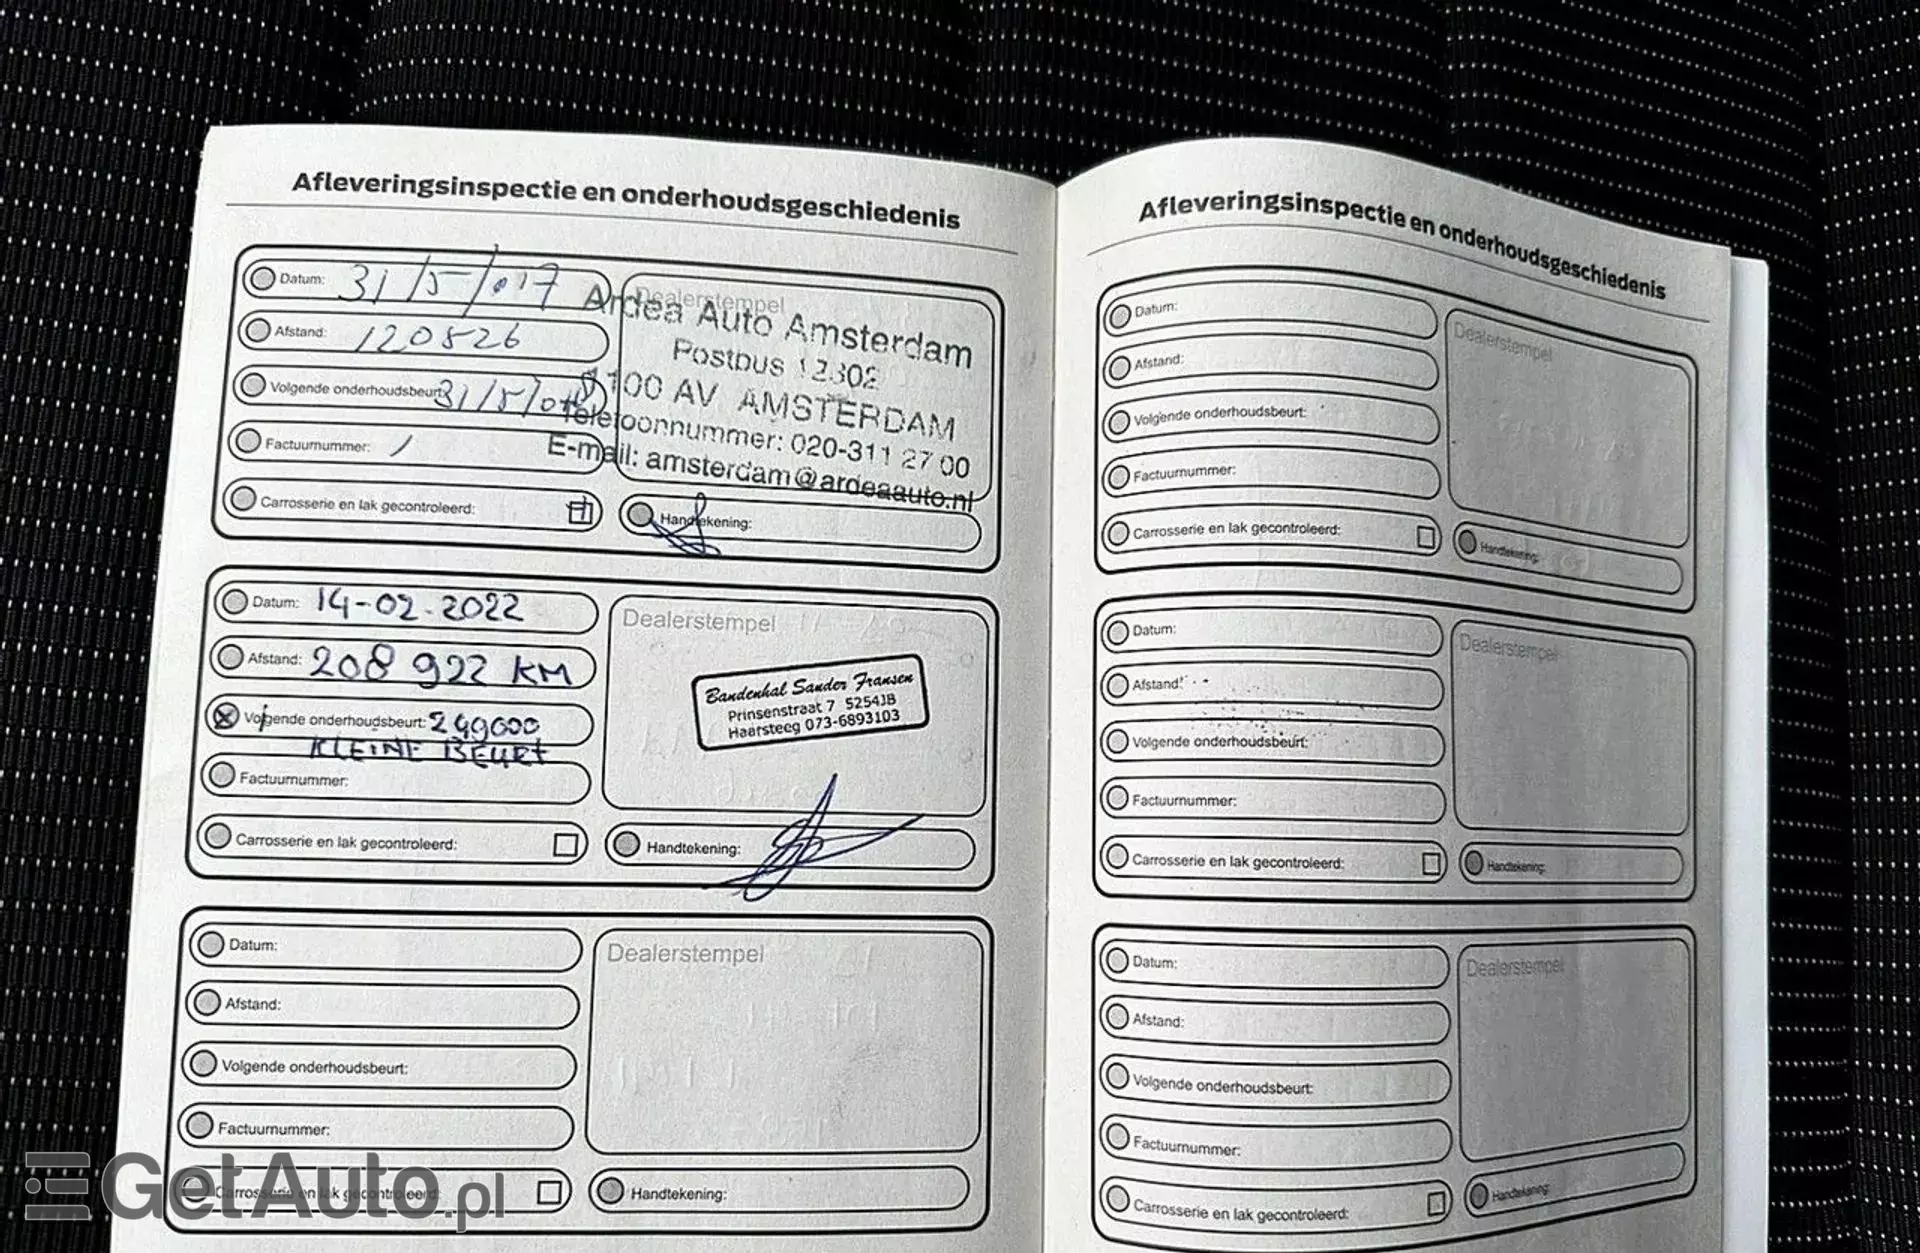 Afleveringsinspectie en onderhoudsgeschiedenis
Datum: 31/5/017
Afstand: 120526
Volgende onderhoudsbeurt: 31/5/018
Factuurnummer: /
Carrosserie en lak gecontroleerd:
Dealerstempel
Ardea Auto Amsterdam
Postbus 12302
1100 AV AMSTERDAM
Telefoonnummer: 020-311 27 00
E-mail: amsterdam@ardeaauto.nl
Handtekening:
Datum: 14-02-2022
Afstand: 208 922 KM
Volgende onderhoudsbeurt: 249000
KLEINE BEURT
Factuurnummer:
Carrosserie en lak gecontroleerd:
Dealerstempel
Bandenhal Sander Fransen
Prinsenstraat 7 5254JB
Haarsteeg 073-6893103
Handtekening:
Datum:
Afstand:
Volgende onderhoudsbeurt:
Factuurnummer:
Carrosserie en lak gecontroleerd:
Dealerstempel
Handtekening:
Afleveringsinspectie en onderhoudsgeschiedenis
Datum:
Afstand:
Volgende onderhoudsbeurt:
Factuurnummer:
Carrosserie en lak gecontroleerd:
Dealerstempel
Handtekening:
Datum:
Afstand:
Volgende onderhoudsbeurt:
Factuurnummer:
Carrosserie en lak gecontroleerd:
Dealerstempel
Handtekening:
Datum:
Afstand:
Volgende onderhoudsbeurt:
Factuurnummer:
Carrosserie en lak gecontroleerd:
Dealerstempel
Handtekening:
GetAuto.pl